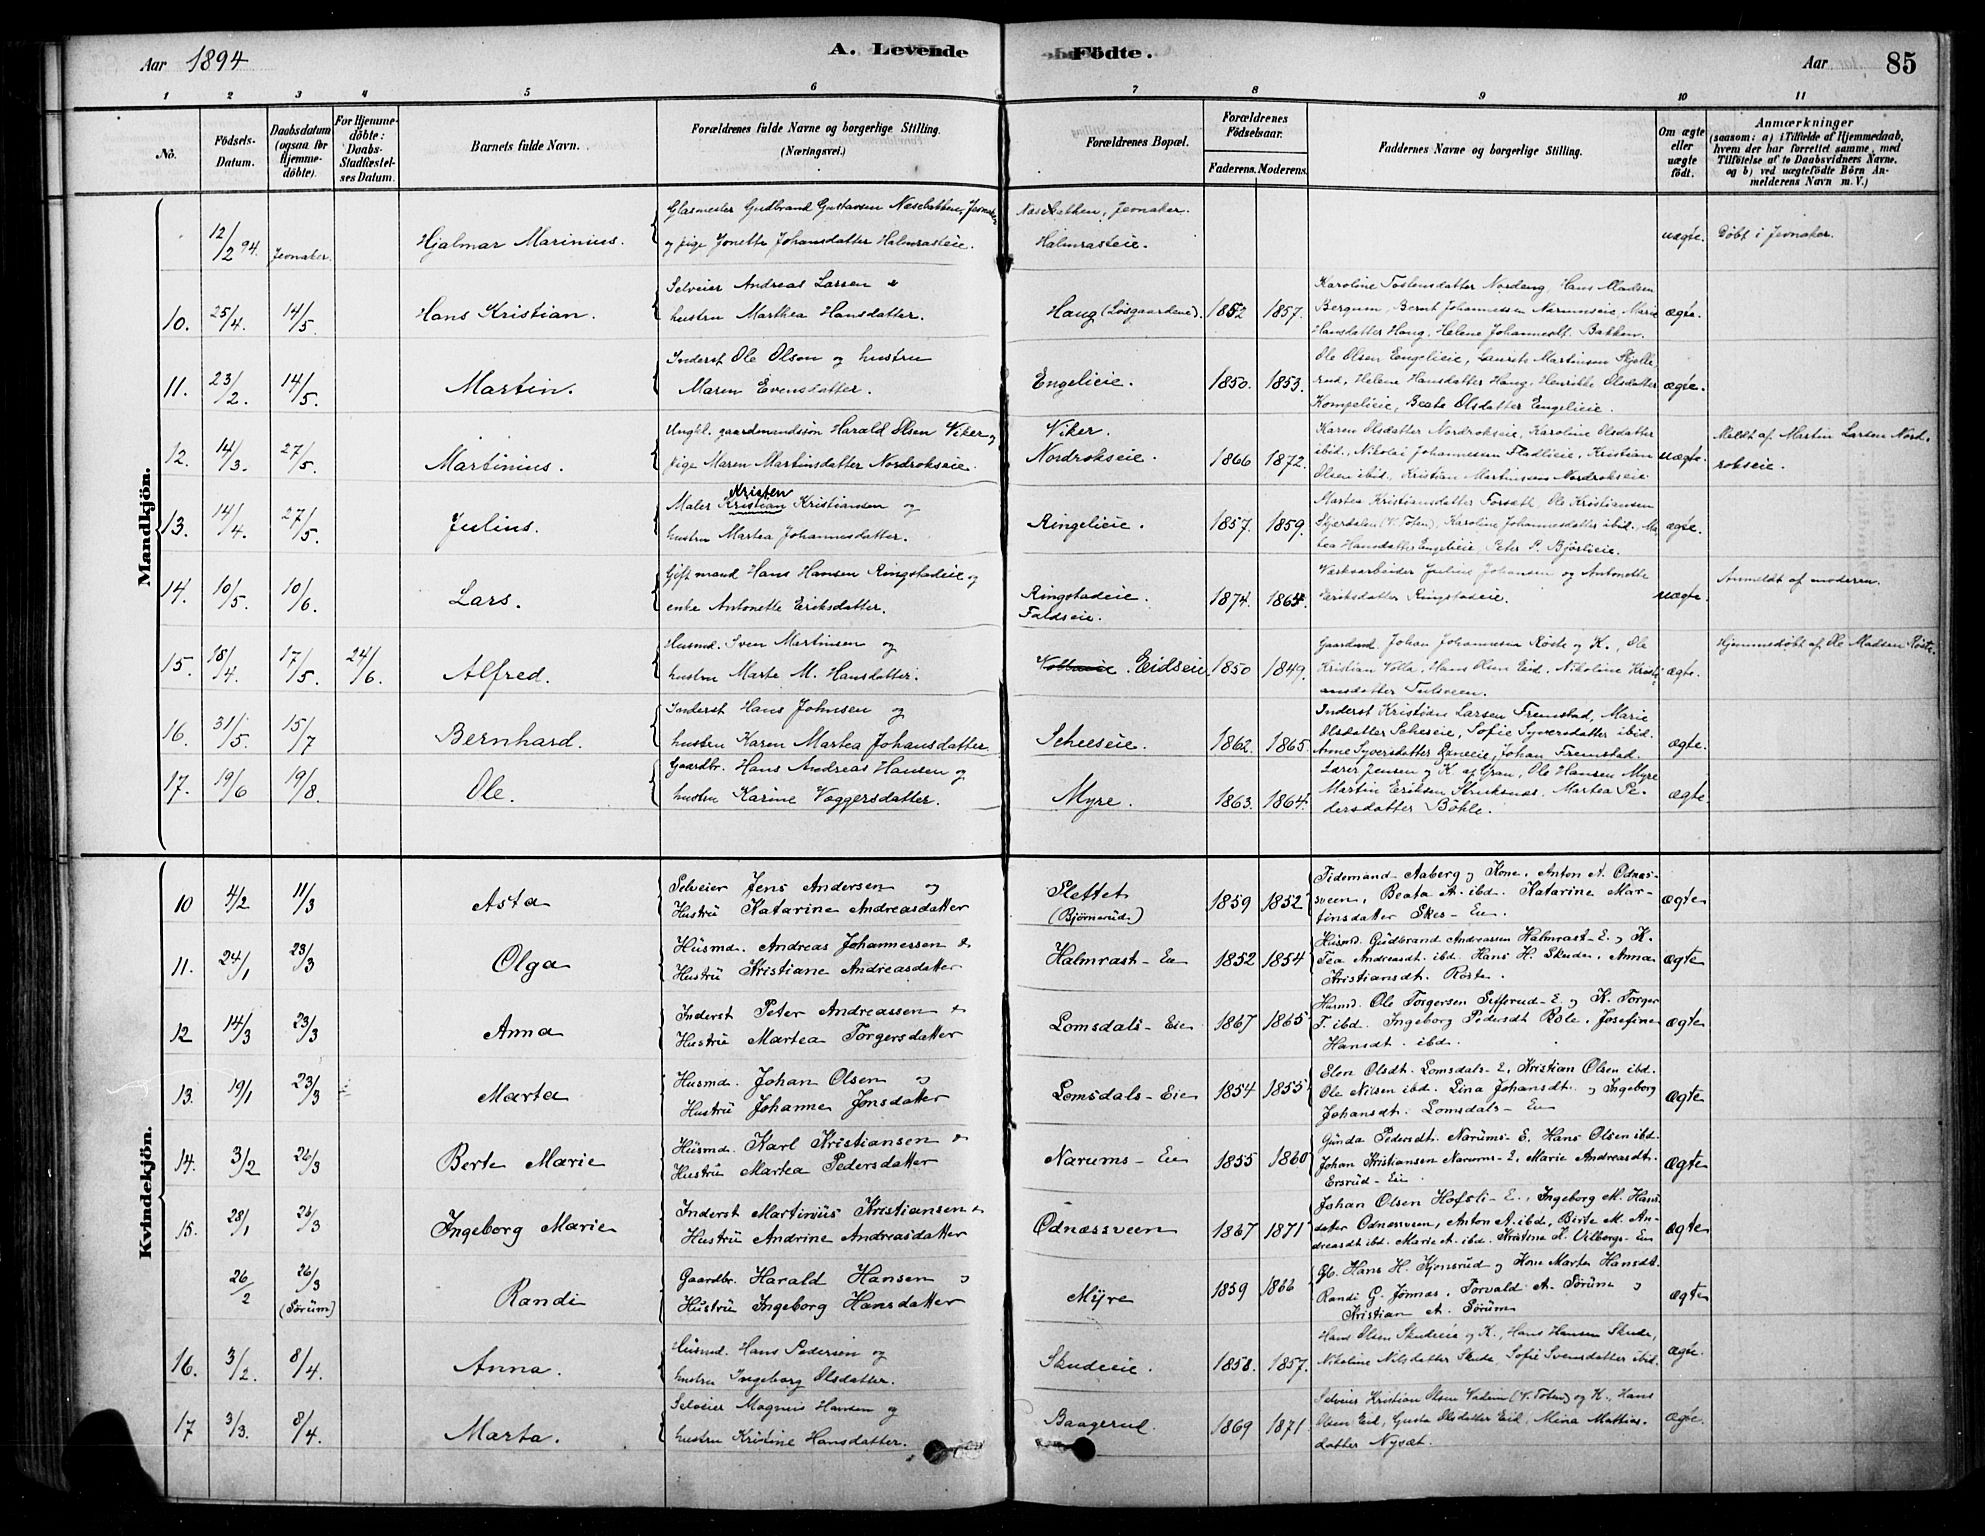 Aar 1894
A. Levende
Födte.
Aar
85
1 2 3 4 5 6 7 8 9 10 11
No.
Födsels-Datum.
Daabsdatum (ogsaa for Hjemmedöbte).
For Hjemmedöbte: Daabs-Stadfæstelses Datum.
Barnets fulde Navn.
Forældrenes fulde Navne og borgerlige Stilling. (Næringsvei.)
Forældrenes Bopæl.
Forældrenes Födselsaar.
Faderens. Moderens.
Faddernes Navne og borgerlige Stilling.
Om ægte eller uægte födt.
Anmærkninger
(saasom: a) i Tilfælde af Hjemmedaab, hvem der har forrettet samme, med Tilföielse af to Daabsvidners Navne, og b) ved uægtefödte Börn Anmelderens Navn m. V.)
Mandkjön.
12/2 94. Jevnaker. Hjalmar Marinius.
Glasmester Gudbrand Gustavsen Næsebakken, Jevnaker
og pige Jonette Johansdatter Halmrasteie.
Næsebakken, Jevnaker.
Halmrasteie.
uægte. Döbt i Jevnaker.
10. 25/4. 14/5. Hans Kristian.
Selveier Andreas Larsen &
hustru Marthea Hansdatter.
Haug (Lösgaardene). 1852 1857.
Karoline Tostensdatter Nordeng, Hans Madsen
Bergum, Bernt Johannessen Narumseie, Marie
Hansdatter Haug, Helene Johannesdt. Bakken.
ægte.
11. 23/2. 14/5. Martin.
Inderst Ole Olson og hustru
Maren Evensdatter.
Engelieie. 1850. 1853.
Ole Olsen Engelieie, Laurits Martinsen Skjelle
rud, Helene Hansdatter Haug, Henrikke Olsdatter
Kompelieie, Beate Olsdatter Engelieie.
ægte.
12. 14/3. 27/5. Martinius.
Ungkl. gaardmandssön Harald Olsen Viker og
pige Maren Martinsdatter Nordrokseie.
Viker.
Nordrokseie. 1866 1872.
Karen Olsdatter Nordrokseie, Karoline Olsdatter
ibid., Nikolai Johannessen Fladlieie, Kristian
Olsen ibid., Kristian Martinsen Nordrokseie
uægte.
Meldt af Martin Larsen Nord.
rokseie.
13. 14/4. 27/5. Julius.
Kristen
Maler Kristian Kristiansen og
hustru Martea Johannesdatter.
Ringelieie. 1857. 1859.
Martea Kristiansdatter Forsæt, Ole Kristiansen
Skjerdalen (V. Toten), Karoline Johannesdatter ibid. Ma
tea Hansdatter Engelieie, Peter P. Björlieie.
ægte.
14. 10/5. 10/6. Lars.
Gift mand Hans Hansen Ringstadeie og
enke Antonette Eriksdatter.
Ringstadeie.
Faldseie. 1874. 1864.
Værksarbeider Julius Johansen og Antonette
Eriksdatter Ringstadeie.
uægte.
Anmeldt af moderen.
15. 18/4. 17/5. 24/6. Alfred.
Husmd. Sven Martinsen og
hustru Marte M. Hansdatter.
Eidseie. 1850 1849.
Gaardmd. Johan Johannesen Röste og K., Ole
Kristian Volle, Hans Olsen Eid, Nikoline Kristi
ansdatter Tulsveen.
ægte.
Hjemmedöbt af Ole Madsen Röste.
16. 31/5. 15/7 Bernhard.
Inderst Hans Johnsen og
hustru Karen Martea Johansdatter
Scheeseie. 1862. 1865.
Inderst Kristian Larsen Fremstad, Marie
Olsdatter Scheseie, Sofie Syversdatter ibid.
Anne Syversdatter, Johan Fremstad.
ægte.
17. 19/6 19/8. Ole.
Gaardbr. Hans Andreas Hansen og
hustru Karine Voggersdatter.
Myre. 1863. 1864.
Lærer Jensen og K. af Gran, Ole Hansen Myre
Martin Eriksen Struksnæs, Martea Pe-
dersdatter Böhle.
ægte.
Kvindekjön.
10 4/2 11/3 Asta
Selveier Jens Andersen og
Hustru Katarine Andreasdatter
Slettet
(Bjørnerud.) 1859 1852
Tidemand Aaberg og Kone, Anton A. Odnæs-
sveen, Beata A. ibd. Katarine Mar-
tinsdatter Skes-Eie.
ægte
11. 24/1 23/3 Olga
Husmd. Andreas Johannessen &
Hustru Kristiane Andreasdatter
Halmrast-Eie 1852 1854
Husmd. Gudbrand Andreassen Halmrast-E. og K.
Tea Andreasdt. ibd. Hans H. Skude, Anna
Kristiansdt. Röste.
ægte
12 14/3 23/3 Anna
Inderst Peter Andreassen &
Hustru Martea Torgersdatter
Lomsdals-Eie 1867 1865
Husmd. Ole Torgersen Sifferud-E. og K. Torger
T. ibd. Ingeborg Pedersdt Bole, Josefine
Hansdt. ibd.
ægte
13. 19/1 23/3 Marta
Husmd. Johan Olsen og
Hustru Johanne Jonsdatter
Lomsdals-Eie 1854 1855
Elen Olsdt. Lomsdals-E, Kristian Olsen ibd.
Ole Nilsen ibd. Lina Johansdt. og Ingeborg
Johansdt. Lomsdals-Eie
ægte
14. 3/2 26/3 Berte Marie
Husmd. Karl Kristiansen &
Hustru Martea Pedersdatter
Narums-Eie 1855 1860
Gunda Pedersdt. Narums-E. Hans Olsen ibd.
Johan Kristiansen Narums-E, Marie Andreasdt.
Ersrud-Eie
ægte
15. 28/1 26/3 Ingeborg Marie
Inderst Martinius Kristiansen &
Hustru Andrine Andreasdatter
Odnæssveen 1867 1871
Johan Olsen Hofsli-E., Ingeborg M. Hans
datter Odnæssveen, Anton A. ibd, Birte M. An-
dreasdt ibd. Marie A. ibd. Kristina K. Vilborgs-Eie
ægte
26/2 26/3 (Sörum) Randi
Gaardbr. Harald Hansen og
Hustru Ingeborg Hansdatter
Myre 1859 1866
Gb. Hans H. Kjonsrud og Kone Marte Hansdt.
Randi G. Jönnæs, Torvald A. Sörum og
Kristian A. Sörum
ægte
16. 3/2. 8/4. Anna.
Husmd. Hans Pedersen og
hustru Ingeborg Olsdatter.
Skudeeie. 1858. 1857.
Hans Olsen Skudeeie og K., Hans Hansen Skude,
Nikoline Nilsdatter Skude, Sofie Svensdatter ibid.
ægte.
17 3/3. 8/4. Marta.
Selveier Magnus Hansen og
hustru Kristine Hansdatter.
Baagerud. 1869 1871.
Selveier Kristian Olsen Vadem (V. Toten) og K., Hans
Olsen Eid, Gusta Olsdatter Eid, Mina Mathias.
datter Nysæt.
ægte.